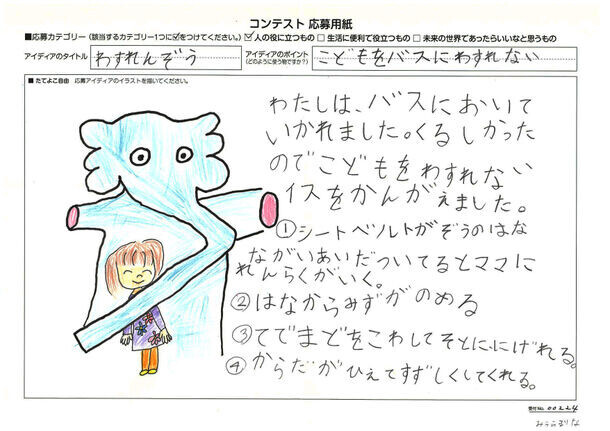 コンテスト 応募用紙
■応募カテゴリー(該当するカテゴリー1つに☑をつけてください。) ☑人の役に立つもの □生活に便利で役立つもの □未来の世界であったらいいなと思うもの
アイディアのタイトル わすれんぞう アイディアのポイント(どのように使う物ですか?) こどもをバスにわすれない
■たてよこ自由 応募アイディアのイラストを描いてください。
わたしは、バスにおいて
いかれました。くるしかった
のでこどもをわすれない
イスをかんがえました。
①シートベソルトがぞうのはな
ながいあいだついてるとママに
れんらくがいく。
②はなからみずがのめる
③てでまどをこわしてそとににげれる。
④からだがひえてすずしくしてくれる。
受付No. 00224